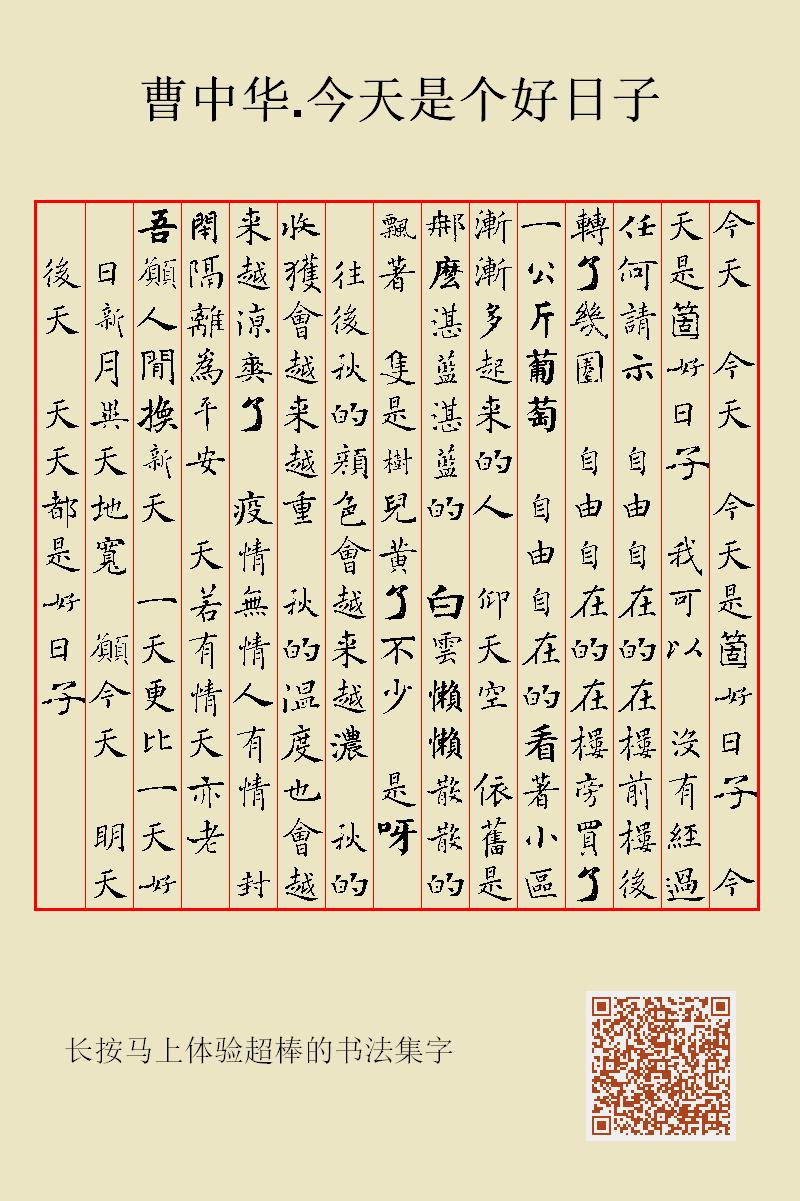 曹中华.今天是个好日子
今天 今天 今天是箇好日子 今
天是箇好日子 我可以 沒有經過
任何請示 自由自在的在樓前樓後
轉了幾圈 自由自在的在樓旁買了
一公斤葡萄 自由自在的看著小區
漸漸多起来的人 仰天空 依舊是
那麼湛藍湛藍的 白雲懶懶散散的
飄著 隻是樹兒黄了不少 是呀
往後秋的顏色會越来越濃 秋的
收獲會越来越重 秋的温度也會越
来越涼爽了 疫情無情人有情 封
閉隔離為平安 天若有情天亦老
吾願人間換新天 一天更比一天好
日新月異天地寬 願今天 明天
後天 天天都是好日子
长按马上体验超棒的书法集字